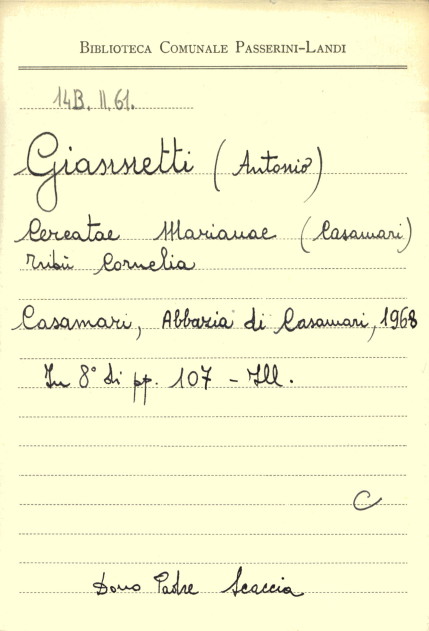 BIBLIOTECA COMUNALE PASSERINI-LANDI
14B. II. 61.
Giannetti (Antonio)
Cereatae Marianae (Casamari)
tribù Cornelia
Casamari, Abbazia di Casamari, 1968
In 8° di pp. 107 - Ill.
C
Dono Padre Scaccia